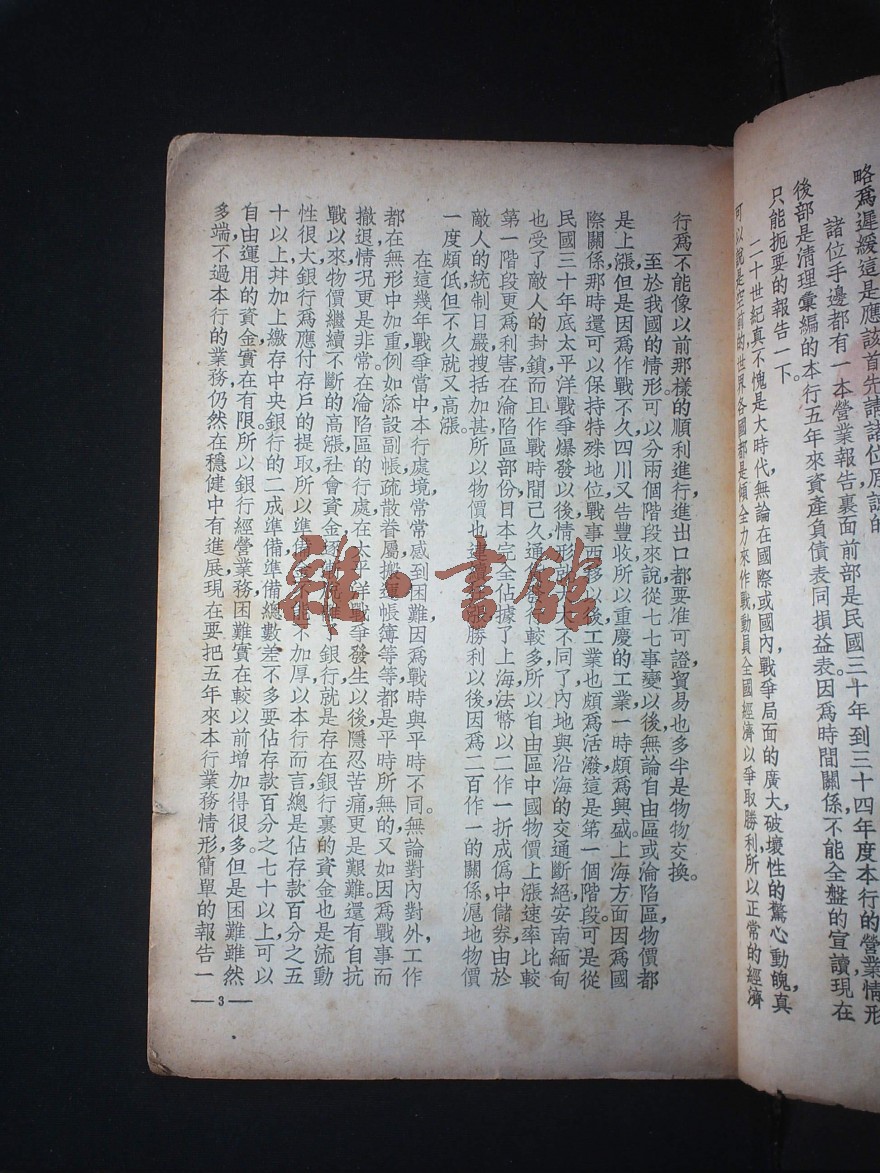 略爲遲緩這是應該首先請諸位原諒的
諸位手邊都有一本營業報告裏面前部是民國三十年到三十四年度本行的營業情形
後部是清理彙編的本行五年來資產負債表同損益表。因爲時間關係不能全盤的宣讀,現在
只能扼要的報告一下。
二十世紀真不愧是大時代,無論在國際或國內,戰爭局面的廣大,破壞性的驚心動魄,真
可以說是空前的,世界各國都是傾全力來作戰,動員全國經濟以爭取勝利,所以正常的經濟
行爲不能像以前那樣的順利進行,進出口都要准可證,貿易也多半是物物交換。
至於我國的情形,可以分兩個階段來說,從七七事變以後,無論自由區或淪陷區,物價都
是上漲,但是因爲作戰不久,四川又告豐收,所以重慶的工業一時頗爲興盛。上海方面因爲國
際關係,那時還可以保持特殊地位,戰事西移以後,工業也頗爲活潑,這是第一個階段。可是從
民國三十年底太平洋戰爭爆發以後,情形 大不同了,內地與沿海的交通斷絕,安南緬甸
也受了敵人的封鎖,而且作戰時間已久,通 較多,所以自由區中國物價上漲速率比較
第一階段更爲利害,在淪陷區部份,日本完全佔據了上海,法幣以二作一折成僞中儲券,由於
敵人的統制日嚴,搜括加甚,所以物價也 漲,勝利以後,因爲二百作一的關係,滬地物價
一度頗低,但不久就又高漲。
在這幾年戰爭當中,本行處境常常感到困難,因爲戰時與平時不同。無論對內對外,工作
都在無形中加重,例如添設副帳,疏散眷屬,搬運帳簿等等,都是平時所無的,又如因爲戰事而
撤退,情況更是非常,在淪陷區的行處,在太平洋戰爭發生以後,隱忍苦痛,更是艱難。還有自抗
戰以來,物價繼續不斷的高漲,社會資金逐 銀行,就是存在銀行裏的資金也是流動
性很大,銀行爲應付存戶的提取,所以準備 不能不加厚,以本行而言,總是佔存款百分之五
十以上,幷加上繳存中央銀行的二成準備,準備總數差不多要佔存款百分之七十以上,可以
自由運用的資金,實在有限。所以銀行經營業務,困難實在較以前增加得很多。但是困難雖然
多端,不過本行的業務,仍然在穩健中有進展,現在要把五年來本行業務情形,簡單的報告一
—3—
雜·書館